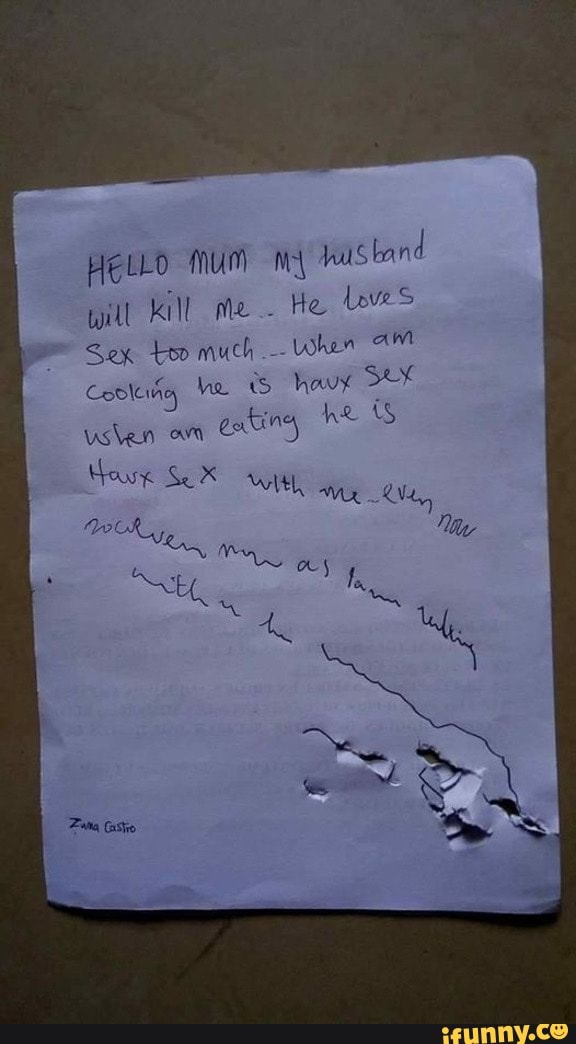 HELLO MUM MY husband
Will kill me.. He loves
Sex too much...When am
Cooking he is havx sex
when am eating he is
Havx Sex with me-even now
as I am talking
with u he
Zuma Castro
ifunny.co